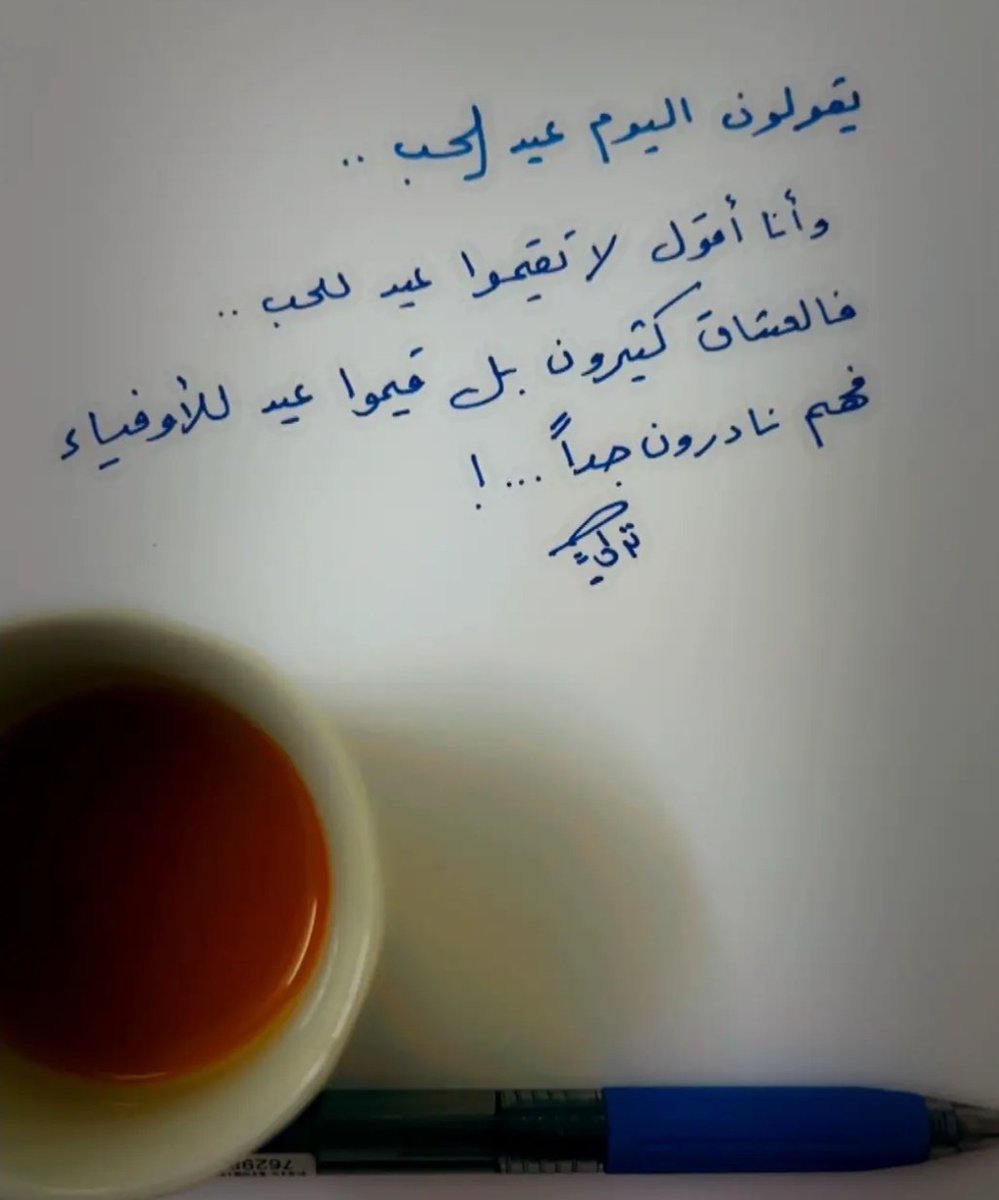 يقولون اليوم عيد الحب ..
وأنا أقول لا تقيموا عيد للحب ..
فالعشاق كثيرون بل قيموا عيد للأوفياء
فهم نادرون جداً ... !
7629